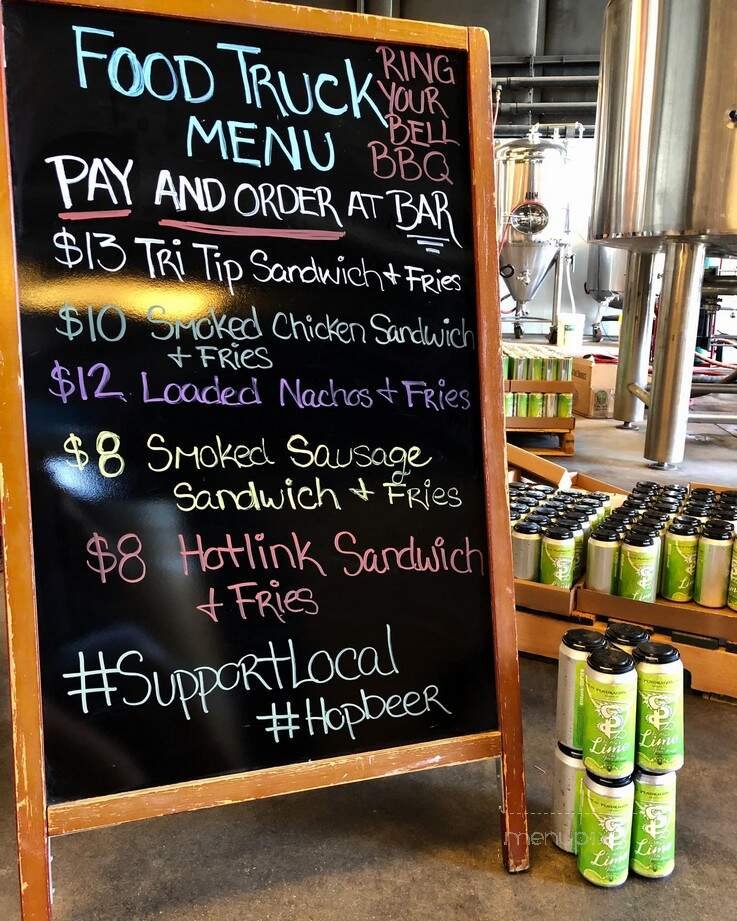 FOOD TRUCK
MENU
RING
YOUR
BELL
BBQ
PAY AND ORDER AT BAR
$13 Tri Tip Sandwich + Fries
$10 Smoked Chicken Sandwich
+ Fries
$12 Loaded Nachos + Fries
$8 Smoked Sausage
Sandwich + Fries
$8 Hotlink Sandwich
+ Fries
#SupportLocal
#Hopbeer
Lime
Lime
Lime
Lime